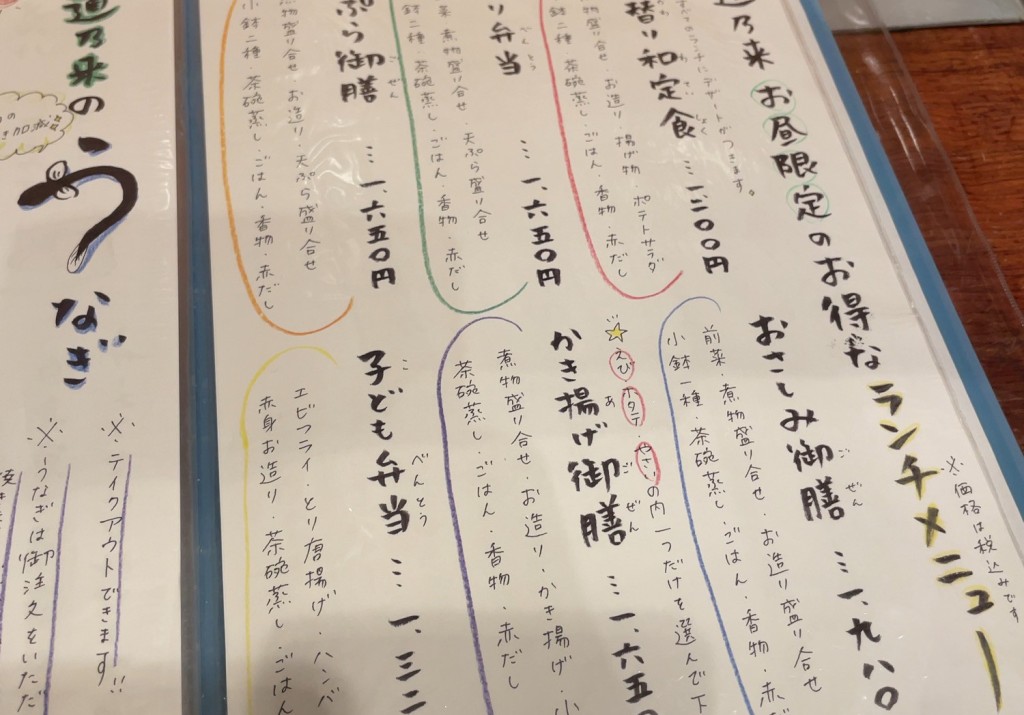 乃来 お昼限定のお得な ランチメニュー
※価格は税込みです
すべてのランチにデザートがつきます。
替り和定食 … 一、二〇〇円
お造り・揚げ物・ポテトサラダ
小鉢二種・茶碗蒸し・ごはん・香物・赤だし
り弁当 … 一、六五〇円
べんとう
菜・煮物盛り合せ・天ぷら盛り合せ
小鉢二種・茶碗蒸し・ごはん・香物・赤だし
ぷら御膳 … 一、六五〇円
ごぜん
煮物盛り合せ・お造り・天ぷら盛り合せ
小鉢二種・茶碗蒸し・ごはん・香物・赤だし
おさしみ御膳 … 一、九八〇
ごぜん
前菜・煮物盛り合せ・お造り盛り合せ
小鉢一種・茶碗蒸し・ごはん・香物・赤だ
えび・ホタテ・やさいの内一つだけを選んで下
かき揚げ御膳 … 一、六五〇
あ ごぜん
煮物盛り合せ・お造り・かき揚げ・小
茶碗蒸し・ごはん・香物・赤だし
子ども弁当 … 一、三二
こ べんとう
エビフライ・とり唐揚げ・ハンバ
赤身お造り・茶碗蒸し・ごはん
乃来の
うなぎ
※テイクアウトできます!!
※うなぎは御注文をいただ